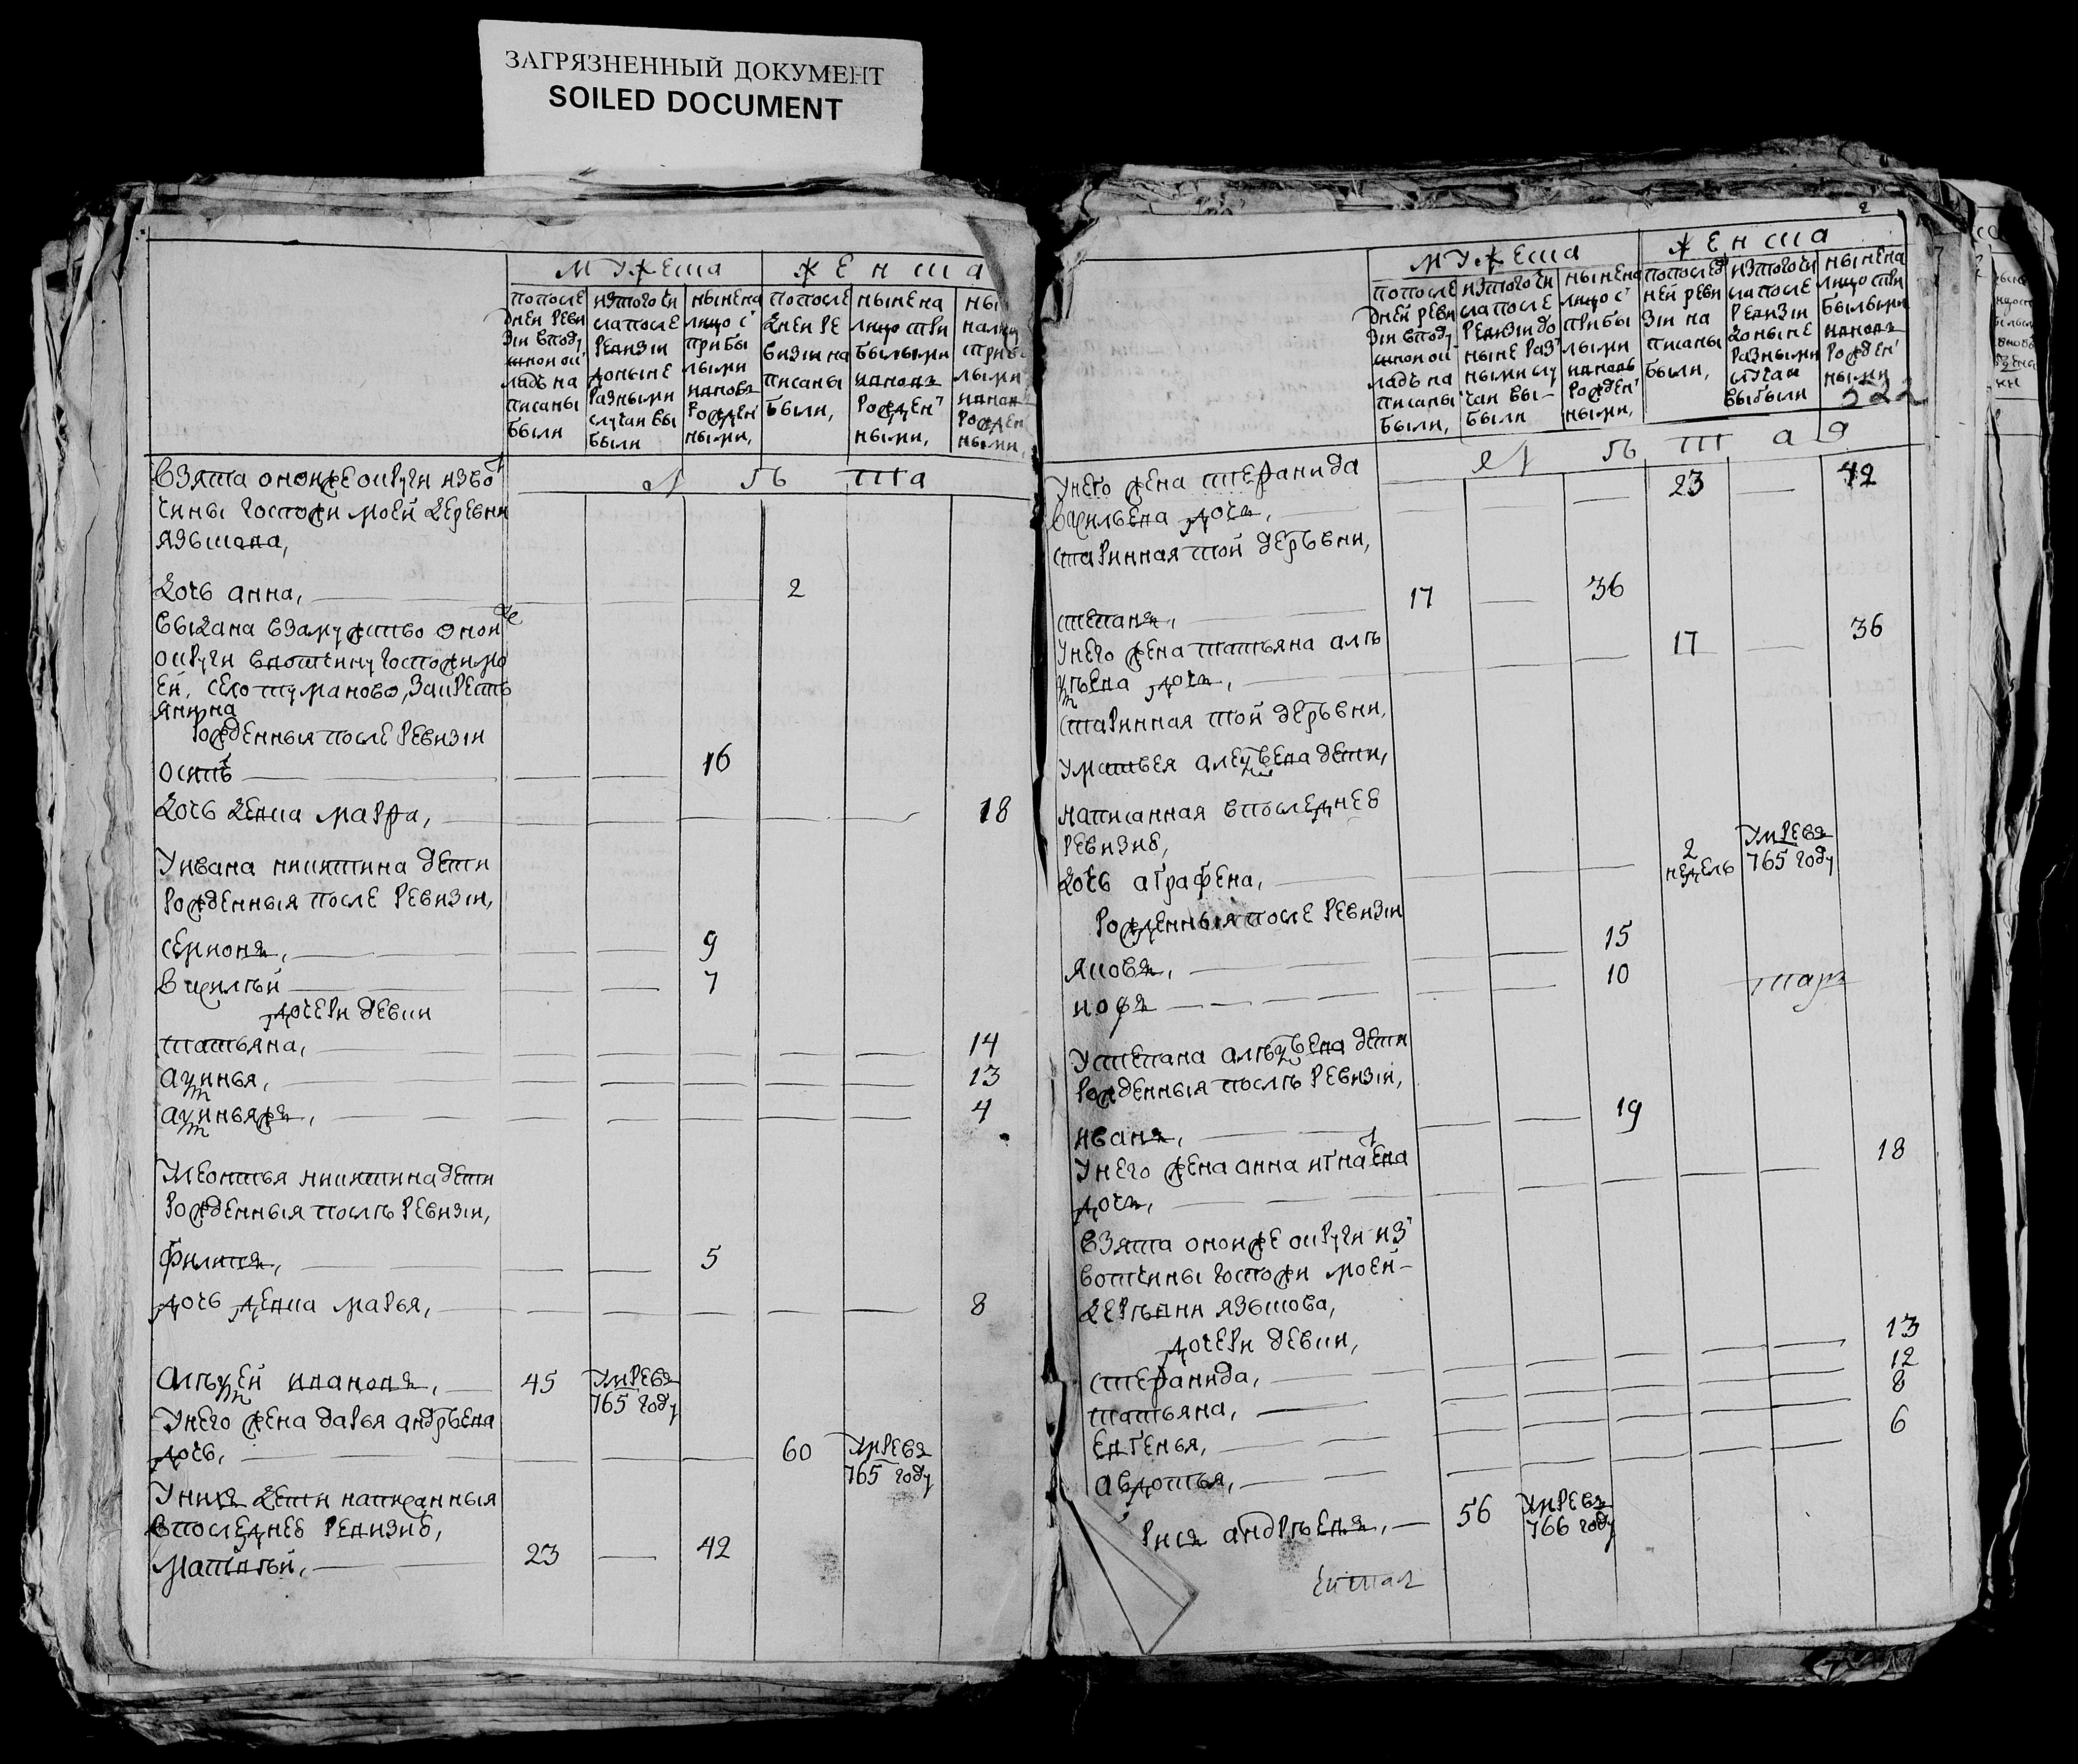 ЗАГРЯЗНЕННЫЙ ДОКУМЕНТ
SOILED DOCUMENT
мужеска
женска
попосле
дней реви
зіи вподу
шной ок
ладъ на
писаны
были
изтого чи
сла после
ревизіи
доныне
разными
случаи вы
были
ныне на
лицо с
прибы
лыми
и вновь
рожден
ными,
попосле
дней ре
визіи на
писаны
были,
ныне на
лицо при
былыми
и вновь
рожден
ными,
лѣта
взята оной же округи из вот
чины госпожи моей деревни
языкова,
дочь анна, 2
выдана взамужство оной же
округи ввотчину госпожи мо
ей, село туманово, за крестья
янина
рожденныя после ревизіи
осипъ 16
дочь девка марфа, 18
у ивана никитина дети
рожденныя после ревизіи,
семионъ, 9
василей 7
дочери девки
татьяна, 14
аксинья, 13
аксинья жъ, 4
у леонтья никитина дети
рожденныя послѣ ревизіи,
филипъ, 5
дочь девка марья, 8
алѣксей ивановъ, 45 умре въ
765 году
у него жена дарья андрѣева
дочь, 60 умре въ
765 году
у нихъ дети написанныя
впоследней ревизіи,
матвѣй, 23 42
мужеска
женска
попосле
дней реви
зіи вподу
шной ок
ладъ на
писаны
были,
изтого чи
сла после
ревизіи до
ныне раз
ными слу
чаи вы
были
ныне на
лицо с
прибы
лыми
и вновь
рожден
ными,
попослед
ней реви
зіи на
писаны
были,
изтого чи
сла после
ревизіи
доныне
разными
случаи
выбыли
ныне на
лицо при
былыми
и вновь
рожден
ными
222
лѣта
у него жена стефанида 23 42
васильева дочь,
старинная той деревни,
степанъ, 17 36
у него жена татьяна алѣ 17 36
ксѣева дочь,
старинная той деревни,
у матвея алексеева дети,
написанная впоследней
ревизіи,
дочь аграфена, 2
недель умре въ
765 году
рожденныя после ревизіи
яковъ, 15
иофъ 10
у степана алѣксеева дети
рожденныя послѣ ревизіи,
иванъ, 19
у него жена анна игнатьева 18
дочь,
взята оной же округи из
вотчины госпожи моей
деревни языкова,
дочери девки,
стефанида, 13
татьяна, 12
евгенья, 8
авдотья, 6
андрѣевъ, 56 умре въ
766 году